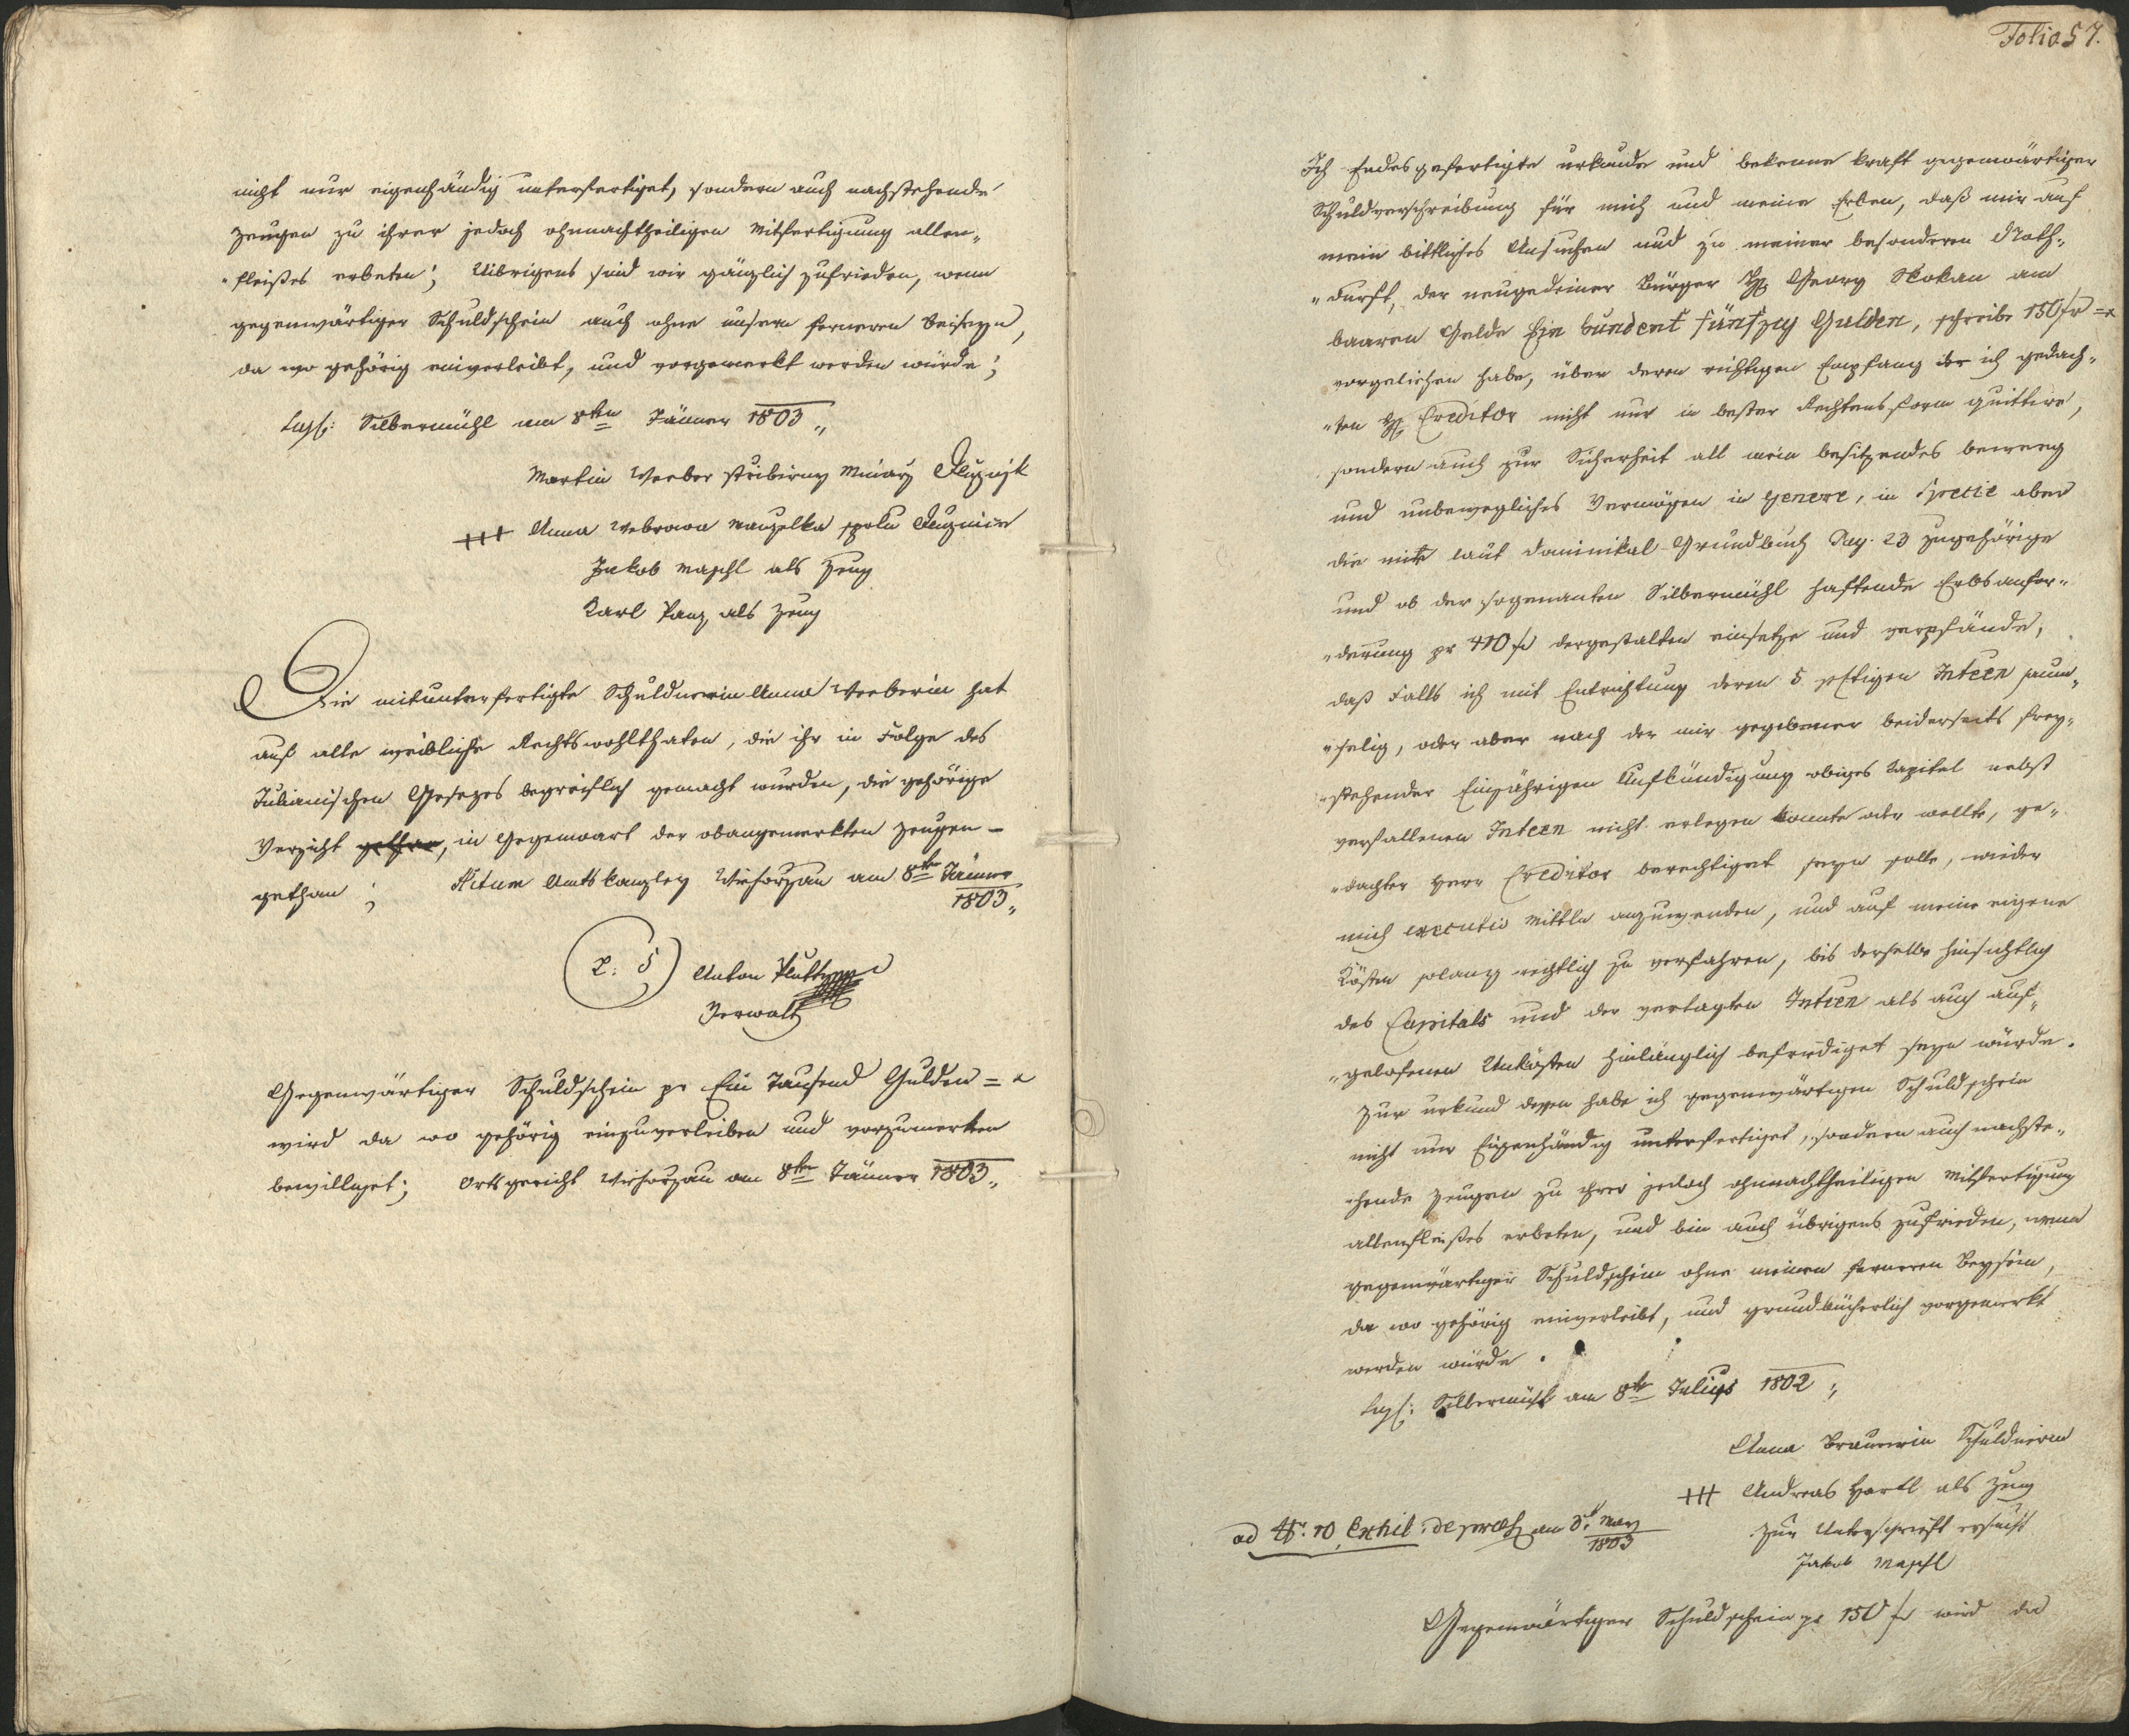 nicht nur eigenhändig unterfertiget, sondern auch nachstehende
Zeugen zu ihrer jedoch ohnnachtheiligen Mitfertigung allen„
„fleißes erbeten; Uibrigens sind wir gänzlich zufrieden, wenn
gegenwärtiger Schuldschein auch ohne unsern ferneren Beiseyn,
da wo gehörig einverleibt, und vorgemerkt werden würde;
Silbermühl am 8ten Jänner 1803„
Martin Weeber stribirny Minarz Dluznjk
+++ Anna Webrowa manzelka spolu Dluznice
Jakob Maschl als Zeug
Karl Panz als Zeug
Die mitunterfertigte Schuldnerin Anna Weeberin hat
auf alle weibliche Rechtswohlthaten, die ihr in Folge des
Julianischen Gesezes begreiflich gemacht wurden, die gehörige
Verzicht gethan, in Gegenwart der obangemerkten Zeugen –
gethan; Amtskanzley am 8ten Jänner
1803„
L: S Anton
Verwalt
Gegenwärtiger Schuldschein pr Ein Tausend Gulden =
wird da wo gehörig einzuverleiben und vorzumerken
bewilliget; Ortsgericht am 8ten Jänner 1803„
Folio 57.
Ich Endesgefertigte urkunde und bekenne kraft gegenwärtiger
Schuldverschreibung für mich und meine Erben, daß mir auf
mein bittliches Ansuchen und zu meiner besonderen Noth„
„durft, der neugedeiner Bürger H Georg Skokan am
baaren Gelde Ein hundert fünfzig Gulden, schreibe 150 fr =
vorgeliehen habe, über deren richtigen Empfang ich gedach„
„ten H Creditor nicht nur in bester Rechtensform quittire,
sondern auch zur Sicherheit all mein besitzendes beweg
und unbewegliches Vermögen in genere, in Specie aber
die mir laut Dominikal-Grundbuch Pag. 23 zugehörige
und ob der sogenanten Silbermühl haftende Erbsanfor„
„derung pr 410 fr dergestalten einsetze und verpfände,
daß Falls ich mit Entrichtung deren 5 pctigen Inteen saum„
„selig, oder aber nach der mir gegebener beiderseits frey„
„stehender Einjährigen Aufkündigung obiges Kapital nebst
verfallenen Inteen nicht erlegen konnte oder wollte, ge„
„dachter Herr Creditor berechtiget seyn solle, wieder
mich executiv Mittln anzuwenden, und auf meine eigene
Kösten solang rechtlich zu verfahren, bis derselbe hinsichtlich
des Capitals und der vertagten Inteen als auch auf„
„gelofenen Unkösten hinlänglich befriediget seyn würde.
Zur urkund dessen habe ich gegenwärtigen Schuldschein
nicht nur Eigenhändig unterfertiget, sondern auch nachste„
„hende Zeugen zu ihrer jedoch ohnnachtheiligen Mitfertigung
allenfleißes erbeten, und bin auch übrigens zufrieden, wenn
gegenwärtiger Schuldschein ohne meinen ferneren Beysein,
da wo gehörig einverleibt, und grundbücherlich vorgemerkt
werden würde.
Silbermühl am 8te Julius 1802;
Anna Brauerin Schuldnerin
+++ Andreas Hartl als Zeug
Zur Unterschrift ersucht
Jakob Maschl
ad N. 10 Exhib: de praes am 3. May
1803
Gegenwärtiger Schuldschein pr 150 fr wird da